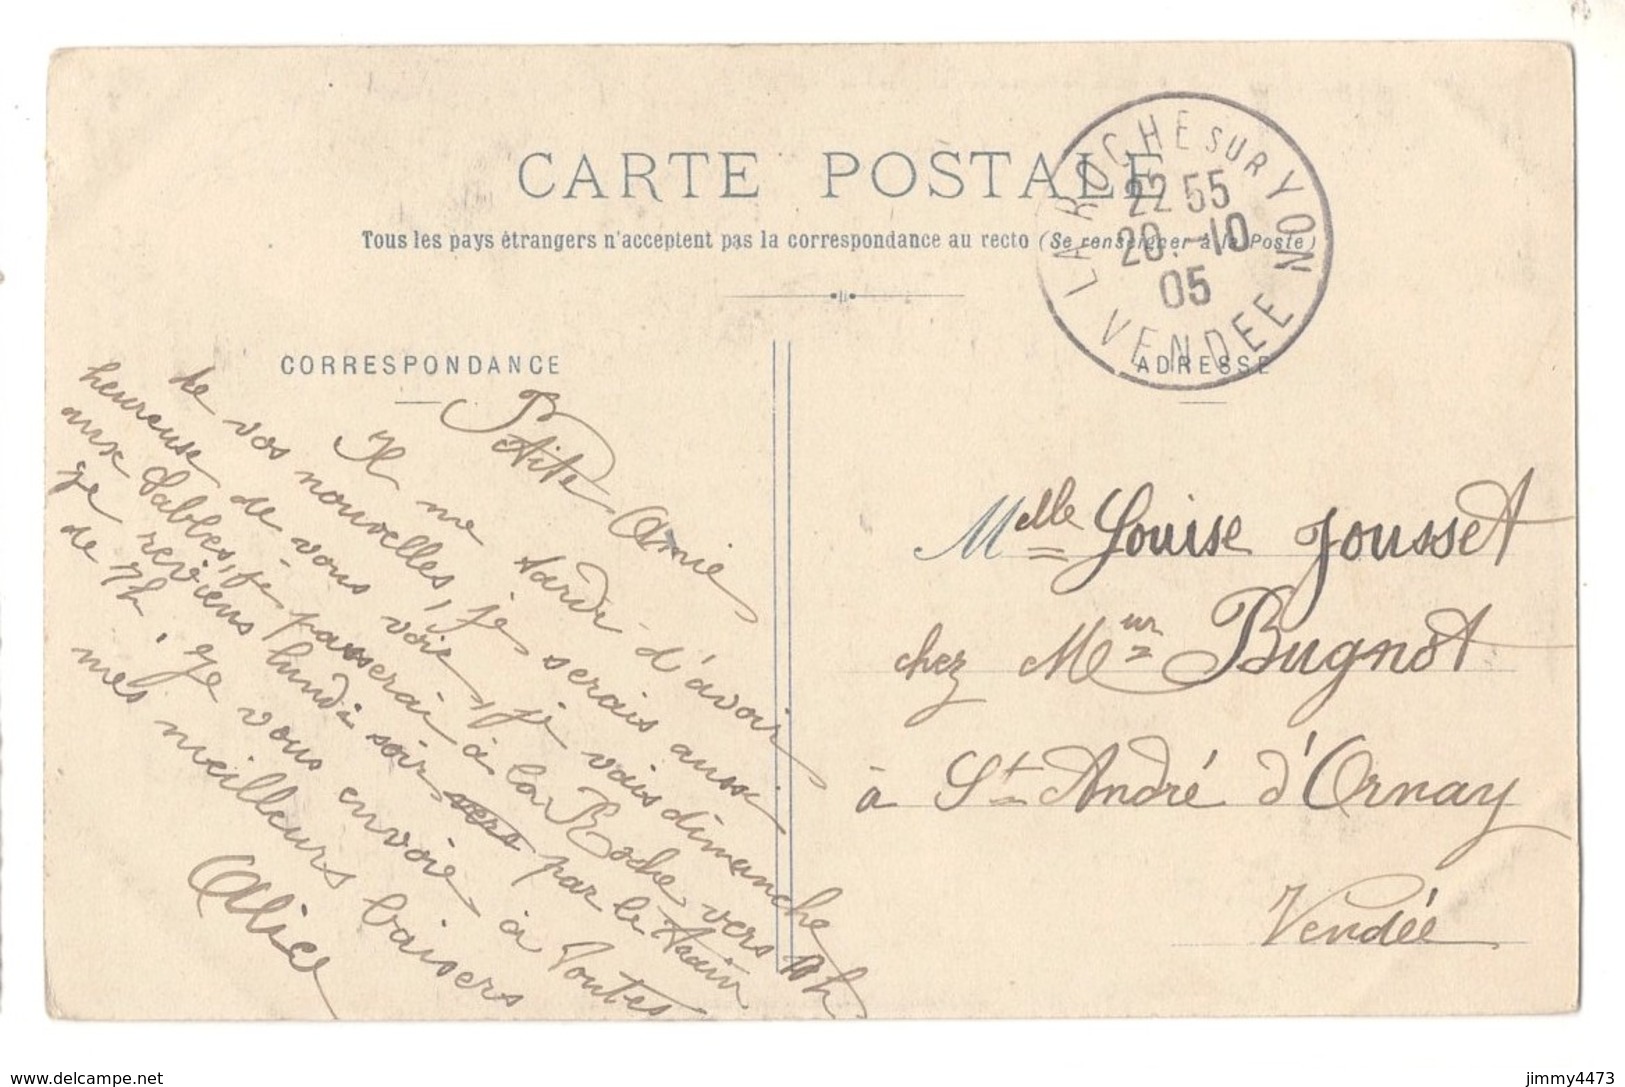 CARTE POSTALE
Tous les pays étrangers n'acceptent pas la correspondance au recto (Se renseigner à la Poste)
LA ROCHE SUR YON
22 55
20 -10
05
VENDEE
CORRESPONDANCE
ADRESSE
Ptite Amie
Il me tarde d'avoir
de vos nouvelles, je serais aussi
heureuse de vous voir, je vais dimanche
aux Sables, je passerai à la Roche vers 10h
je reviens lundi soir vers par le train
de 7h. Je vous envoie à toutes
mes meilleurs baisers
Alice
Melle Louise Jousset
chez Mur Bugnot
à St André d'Ornay
Vendée
www.delcampe.net
jimmy4473